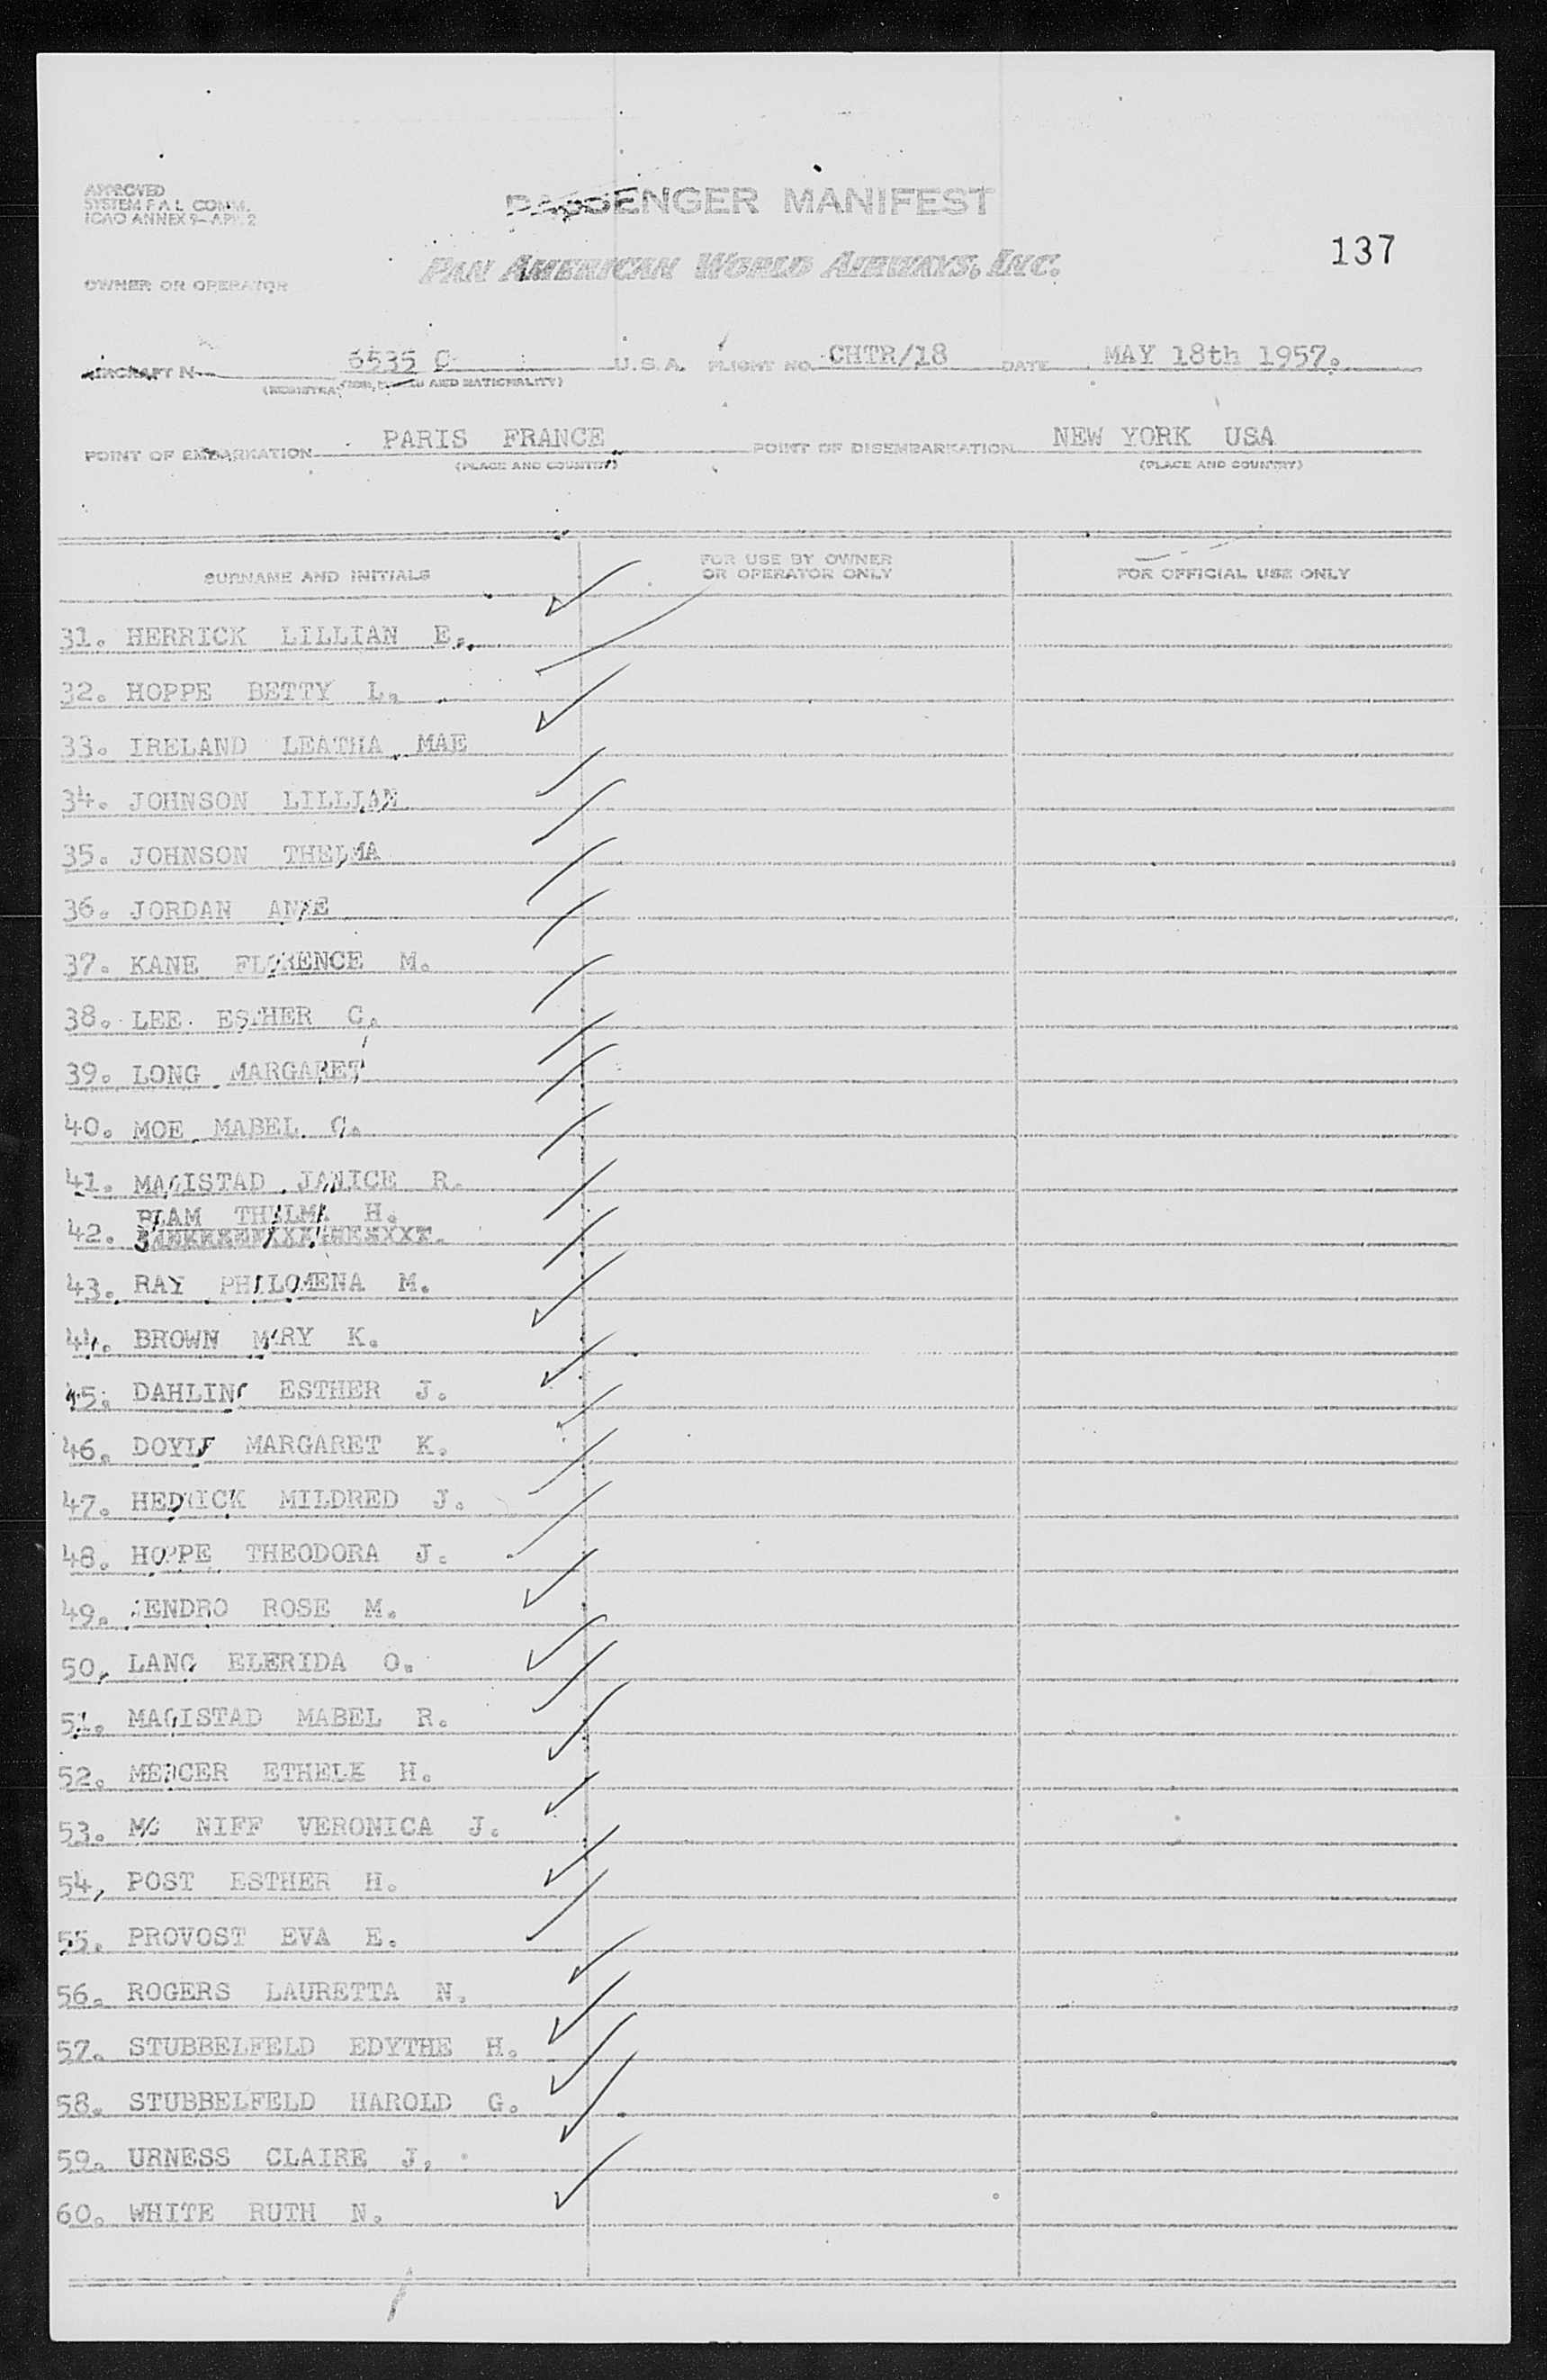 APPROVED
SYSTEM F A L COMM.
ICAO ANNEX 9-APP. 2
PASSENGER MANIFEST
137
OWNER OR OPERATOR
PAN AMERICAN WORLD AIRWAYS, INC.
AIRCRAFT N 6535 C U.S.A. FLIGHT NO. CHTR/18 DATE MAY 18th 1957.
AND NATIONALITY)
POINT OF EMBARKATION PARIS FRANCE POINT OF DISEMBARKATION NEW YORK USA
(PLACE AND COUNTRY) (PLACE AND COUNTRY)
SURNAME AND INITIALS FOR USE BY OWNER OR OPERATOR ONLY FOR OFFICIAL USE ONLY
31. HERRICK LILLIAN E.
32. HOPPE BETTY L.
33. IRELAND LEATHA MAE
34. JOHNSON LILLIAN
35. JOHNSON THELMA
36. JORDAN ANNE
37. KANE FLORENCE M.
38. LEE ESTHER C.
39. LONG MARGARET
40. MOE MABEL C.
41. MAGISTAD JANICE R.
42. THELMA H.
43. RAY PHILOMENA M.
44. BROWN MARY K.
45. DAHLING ESTHER J.
46. DOYLE MARGARET K.
47. HEDRICK MILDRED J.
48. HOPPE THEODORA J.
49. JENDRO ROSE M.
50. LANG ELERIDA O.
51. MAGISTAD MABEL R.
52. MERCER ETHELE H.
53. MC NIFF VERONICA J.
54. POST ESTHER H.
55. PROVOST EVA E.
56. ROGERS LAURETTA N.
57. STUBBELFELD EDYTHE H.
58. STUBBELFELD HAROLD G.
59. URNESS CLAIRE J.
60. WHITE RUTH N.